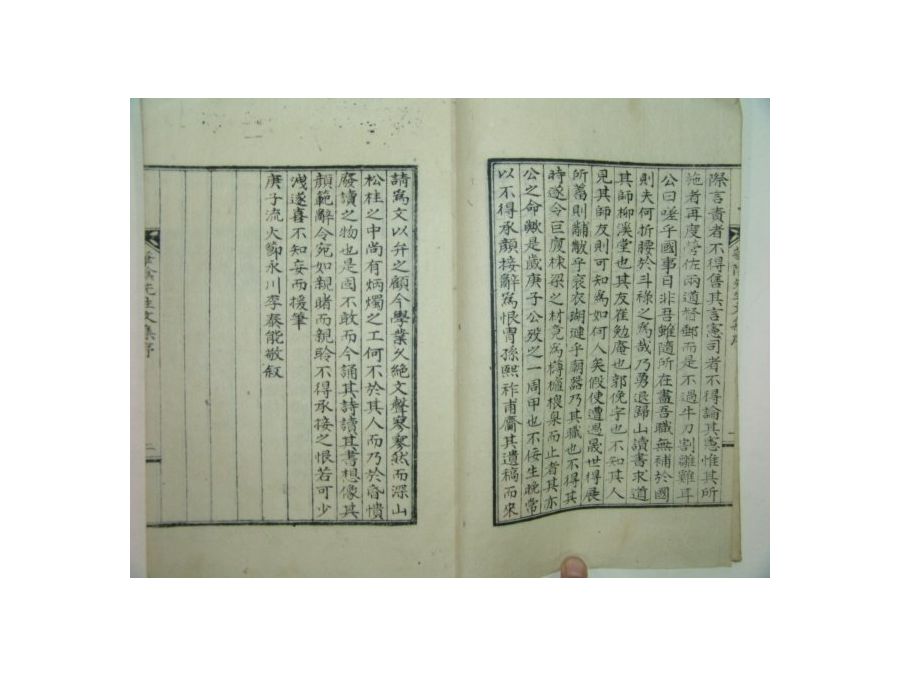 際言責者不得售其言憲司者不得論其憲惟其所
施者再度營佐兩道督郵而是不過牛刀割雞雞耳
公曰嗟乎國事日非吾雖隨所在盡吾職無補於國
則夫何折腰於斗祿之爲哉乃勇退歸山讀書求道
其師柳溪堂也其友崔勉庵也郭俛宇也不知其人
見其師友則可知爲如何人矣假使遭遇晟世得展
所蓄則黼黻乎袞衣瑚璉乎廟器乃其職也不得其
時遂令巨廈棟梁之材竟爲欂櫨椳臬而止者其亦
公之命歟是歲庚子公歿之一周甲也不佞生晩常
以不得承顔接辭爲恨胄孫熙祚甫齎其遺稿而來
請爲文以弁之顧今學業久絶文聲寥寥然而深山
松桂之中尚有炳燭之工何不於其人而乃於昏憒
廢讀之物也是固不敢而今誦其詩讀其書想像其
顔範辭令宛如親睹而親聆不得承接之恨若可少
洩遂喜不知妄而援筆
庚子流火節永川李泰能敬叙
先生文集序
二